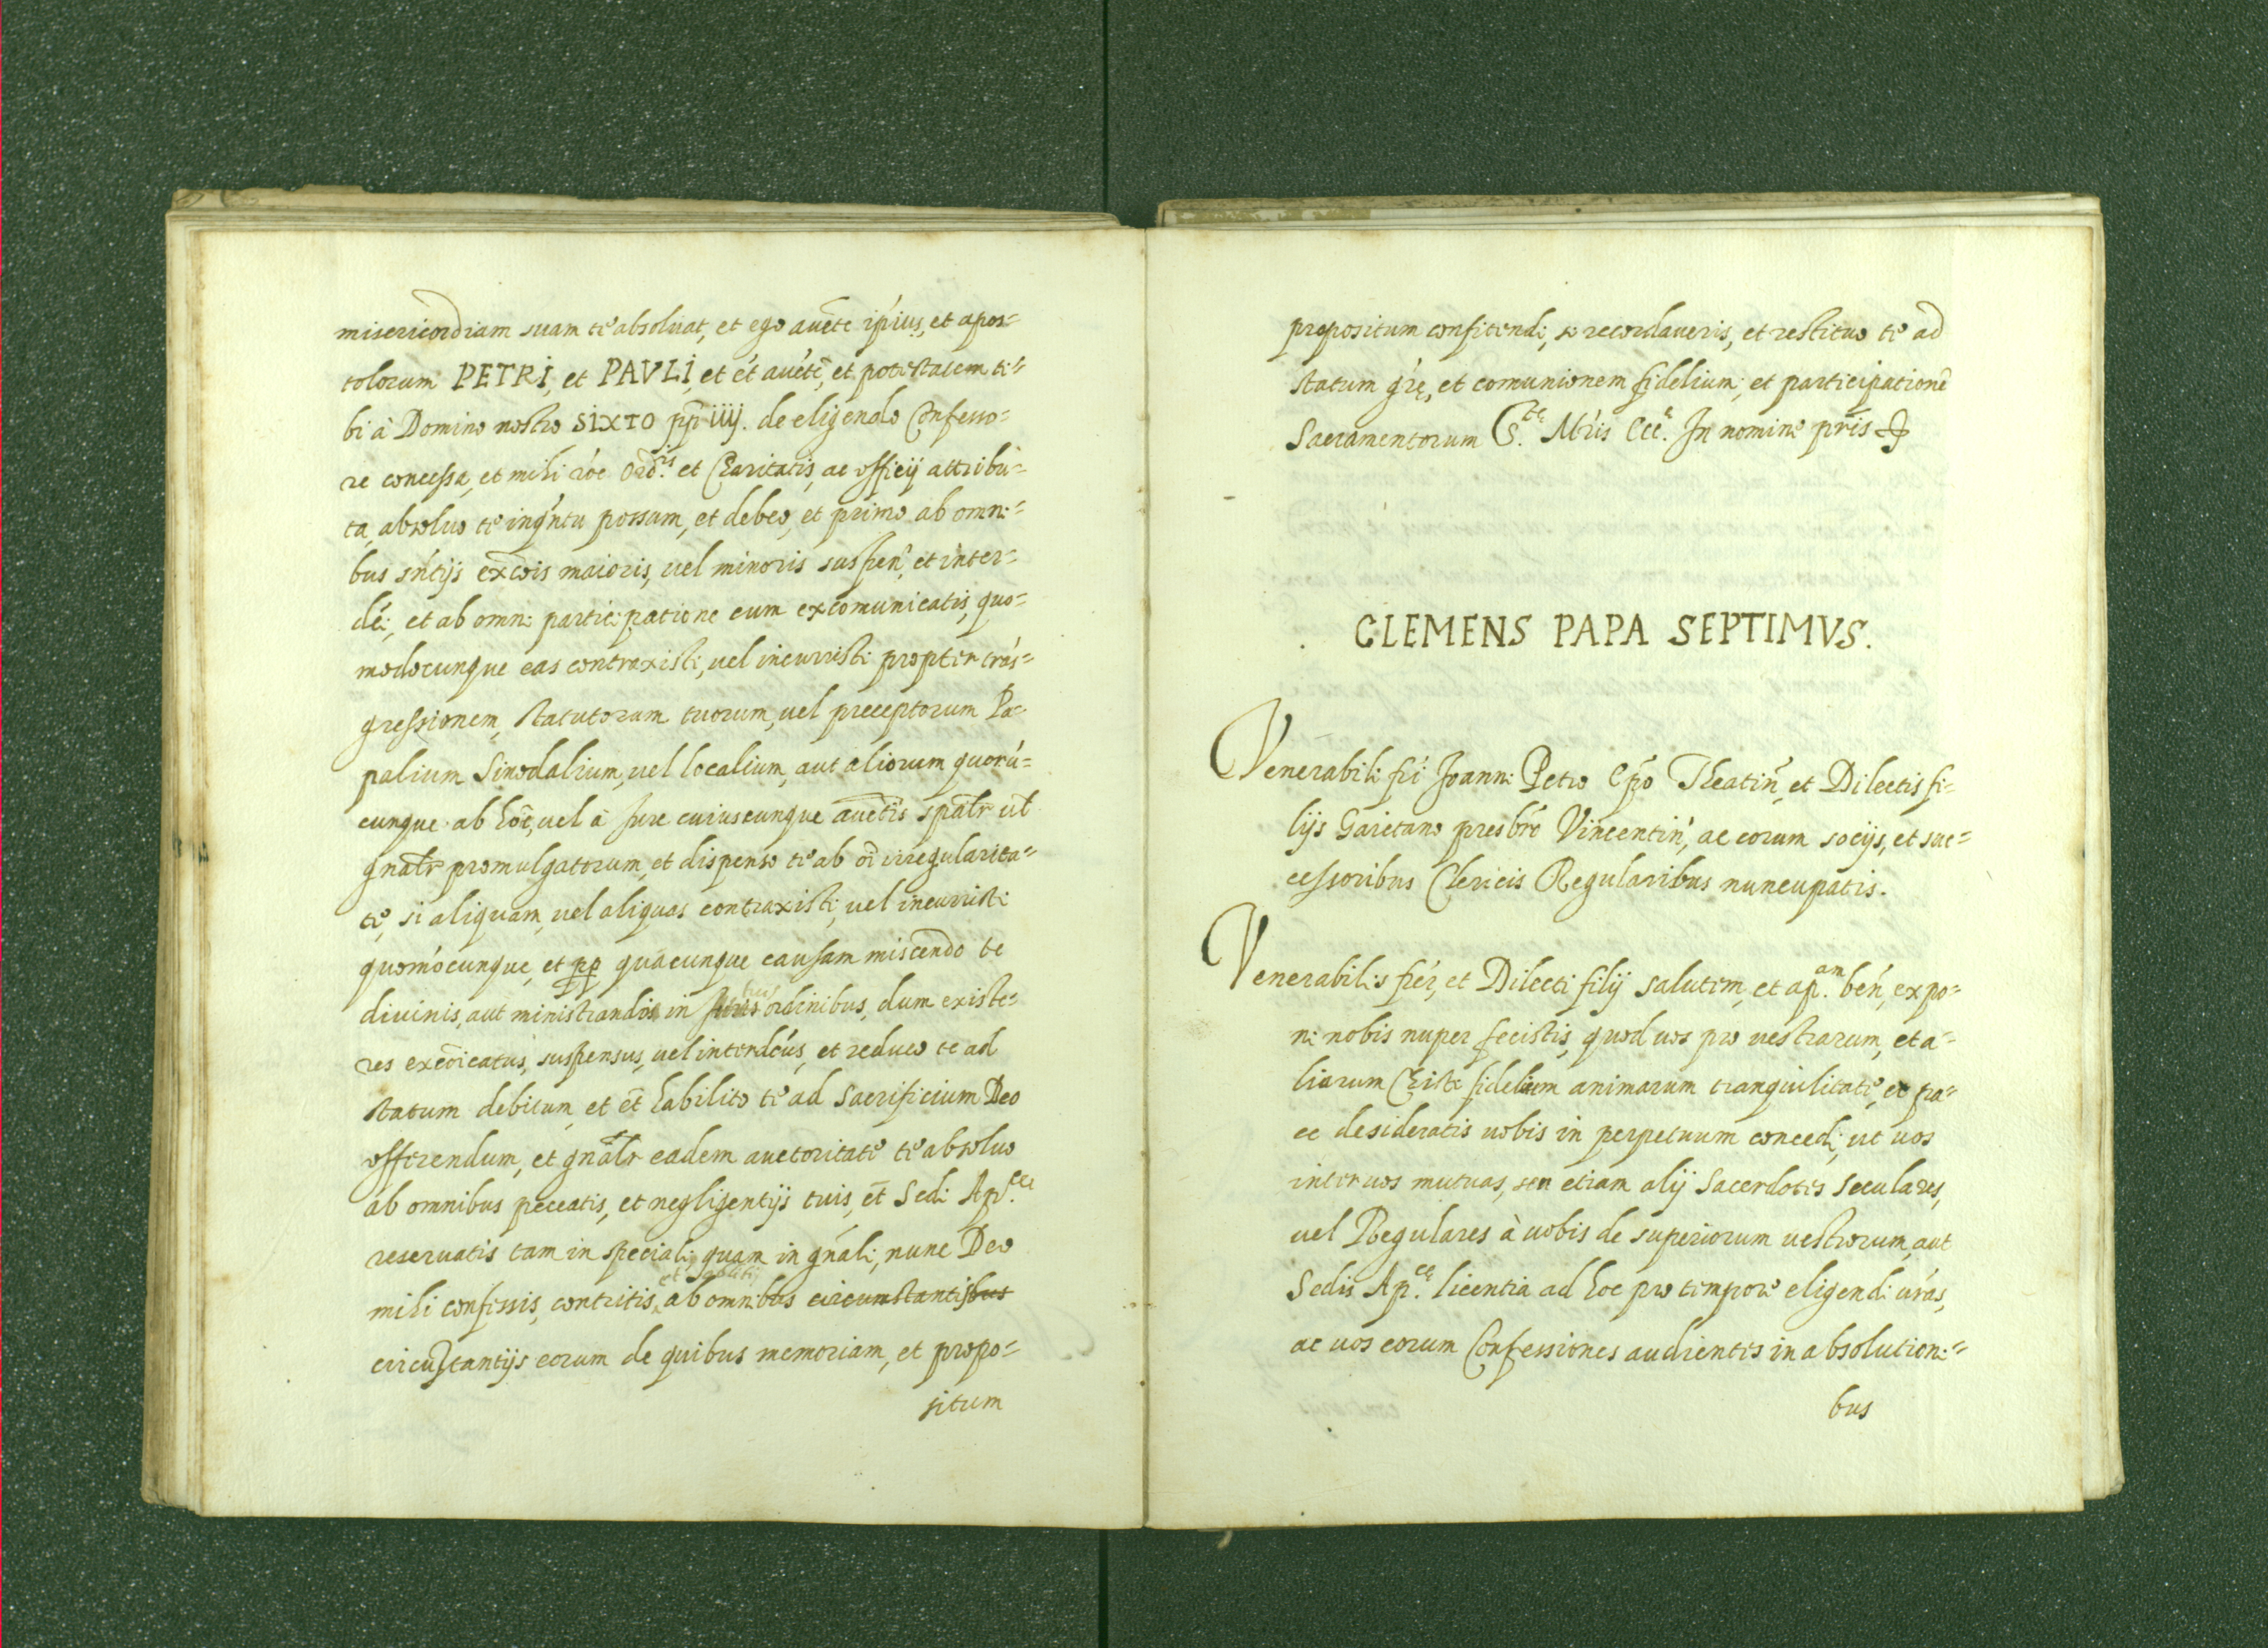 misericordiam suam te absoluat, et ego aucte ipius, et apos=
tolorum PETRI, et PAVLI, et ét aucte, et potestatem ti=
bi à Domino nostro SIXTO pp iiij. de eligendo Confesso=
re concessa, et mihi róe Ord.is et Charitatis, ac officij attribu=
ta, absoluo te inq́ntu possum, et debeo, et primo ab omni=
bus sńtijs excóis maioris, uel minoris suspen, et inter=
dći, et ab omni participatione cum excomunicatis, quo=
modocunque eas contraxisti, uel incurristi propter trás=
gressionem, statutorum tuorum, uel preceptorum Pa=
palium Sinodalium, uel localium, aut aliorum quorú=
cunque ab hoīe, uel à Jure cuiuscunque auctīs spālr ul
gnālr promulgatorum, et dispenso te ab oī irregularita=
te, si aliquam, uel aliquas contraxisti, uel incurristi
quomócunque, et pp quācunque causam miscendo te
diuinis, aut ministrando in ordinibus, dum existe=
res excōicatus, suspensus, uel interdćus, et reduco te ad
statum debitum, et ēt habilito te ad Sacrificium Deo
offerendum, et gnālr eadem auctoritate te absoluo
ab omnibus peccatis, et negligentijs tuis, ēt Sedi Ap.cę
reseruatis tam in speciali, quam in gńali, nunc Deo
mihi confessis, contritis, ab omnibus circumstantijbus
circustantijs eorum de quibus memoriam, et propo=
situm
propositum confitendi, si recordaueris, et restituo te ad
statum grę, et comunionem fidelium, et participationē
Sacramentorum S.tę Mŕis Ecc.ę In nomine pris ✠
CLEMENS PAPA SEPTIMVS.
Venerabili fri Joanni Petro Epo Theatin, et Dilectis fi=
lijs Gaietano presbro Vincentin, ac eorum socijs, et suc=
cessoribus Clericis Regularibus nuncupatis.
Venerabilis frer, et Dilecti filij salutem, et ap.am ben, expo=
ni nobis nuper fecistis, quod uos pro uestrarum, et a=
liorum Christi fidelium animarum tranquilitate, et pa=
ce desideratis uobis in perpetuum concedi, ut uos
inter uos mutuas, seu etiam alij Sacerdotes Seculares,
uel Regulares à uobis de superiorum uestrorum, aut
Sedis Ap.cę licentia ad hoc pro tempore eligendi urás,
ac uos eorum Confessiones audientes in absolutioni=
bus